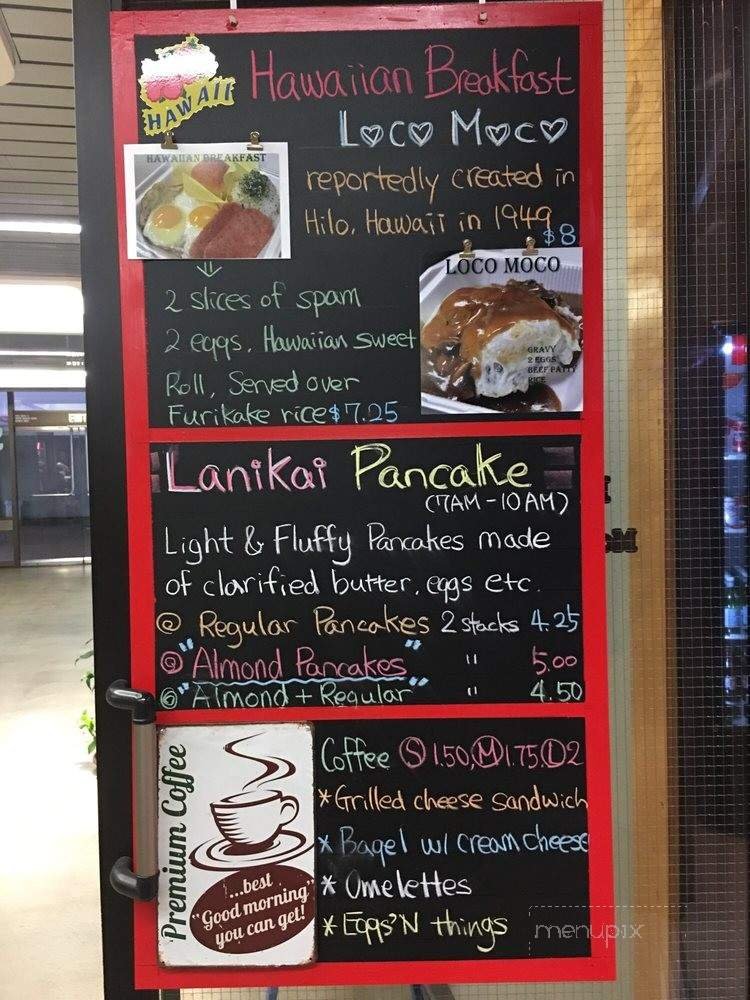 HAWAII
Hawaiian Breakfast
Loco Moco
HAWAIIAN BREAKFAST
reportedly created in
Hilo, Hawaii in 1949
$8
LOCO MOCO
GRAVY
2 EGGS
BEEF PATTY
RICE
2 slices of spam
2 eggs, Hawaiian sweet
Roll, Served over
Furikake rice $7.25
Lanikai Pancake
(7AM-10AM)
Light & Fluffy Pancakes made
of clarified butter, eggs etc.
@ Regular Pancakes 2 stacks 4.25
@ "Almond Pancakes" " 5.00
@ "Almond + Regular" " 4.50
Premium Coffee
...best
"Good morning"
you can get!
Coffee S 1.50, M 1.75, L 2
* Grilled cheese sandwich
* Bagel w/ cream cheese
* Omelettes
* Eggs'N things
menupix